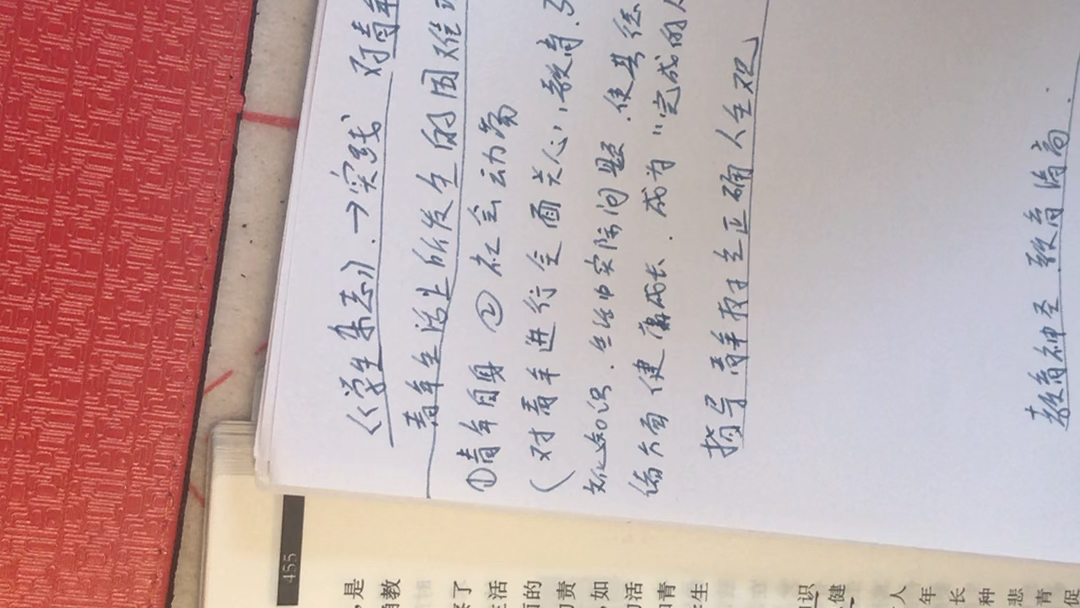 《学生杂志》→实践 对青年
青年生活上所发生的困难
①青年自身 ②社会动荡
(对青年进行全面关心,教育.
文化知识.生活中实际问题.使其
诸方面健康成长.成为"完成的人
指导青年树立正确人生观
教育神圣 教育清高.
455
是
教
了
生活
面的
责
,如
活
青
学生
识
健
人
年
长
种
悲
青
促